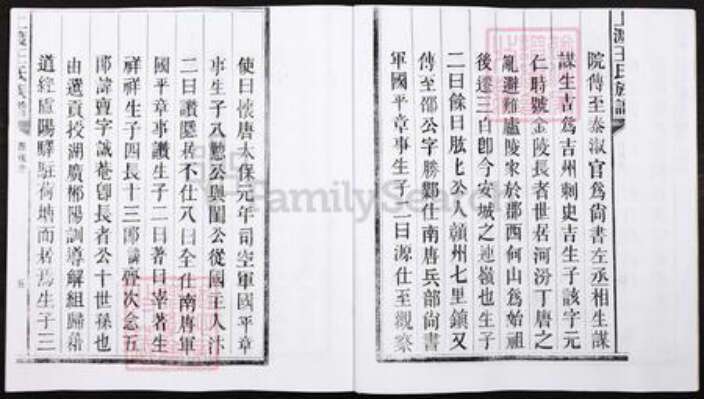 院傳至泰淑官爲尚書左丞相生謀
謀生吉爲吉州刺史吉生子該字元
仁時號金陵長者世居河汾丁唐之
亂避難廬陵家於郡西何山爲始祖
後遷三白卽今安城之連嶺也生子
二曰餘曰肱七公人贛州七里鎮又
傳至邵公字勝鄴仕南唐兵部尚書
軍國平章事生子二曰源仕至觀察
使曰懷唐太保元年司空軍國平章
事生子八懃公與閏公從國主人汴
二曰讚隱居不仕八曰全仕南唐軍
國平章事讚生子二曰著曰宰著生
祥祥生子四長十三郎 次念五
郎諱寶字誠菴卽長者公十世孫也
由選貢授湖廣郴陽訓導解組歸籍
道經廬陽驛駐荷塘而居焉生子三
上源王氏族譜
FamilySearch